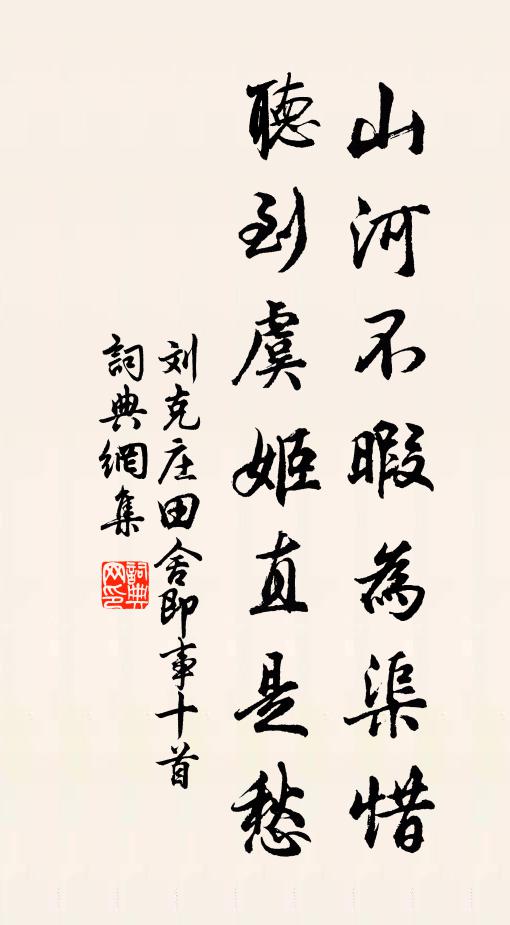 山河不暇為渠惜
聽到虞姬直是愁
刘克庄田舍即事十首
詞典網集
詞典網印